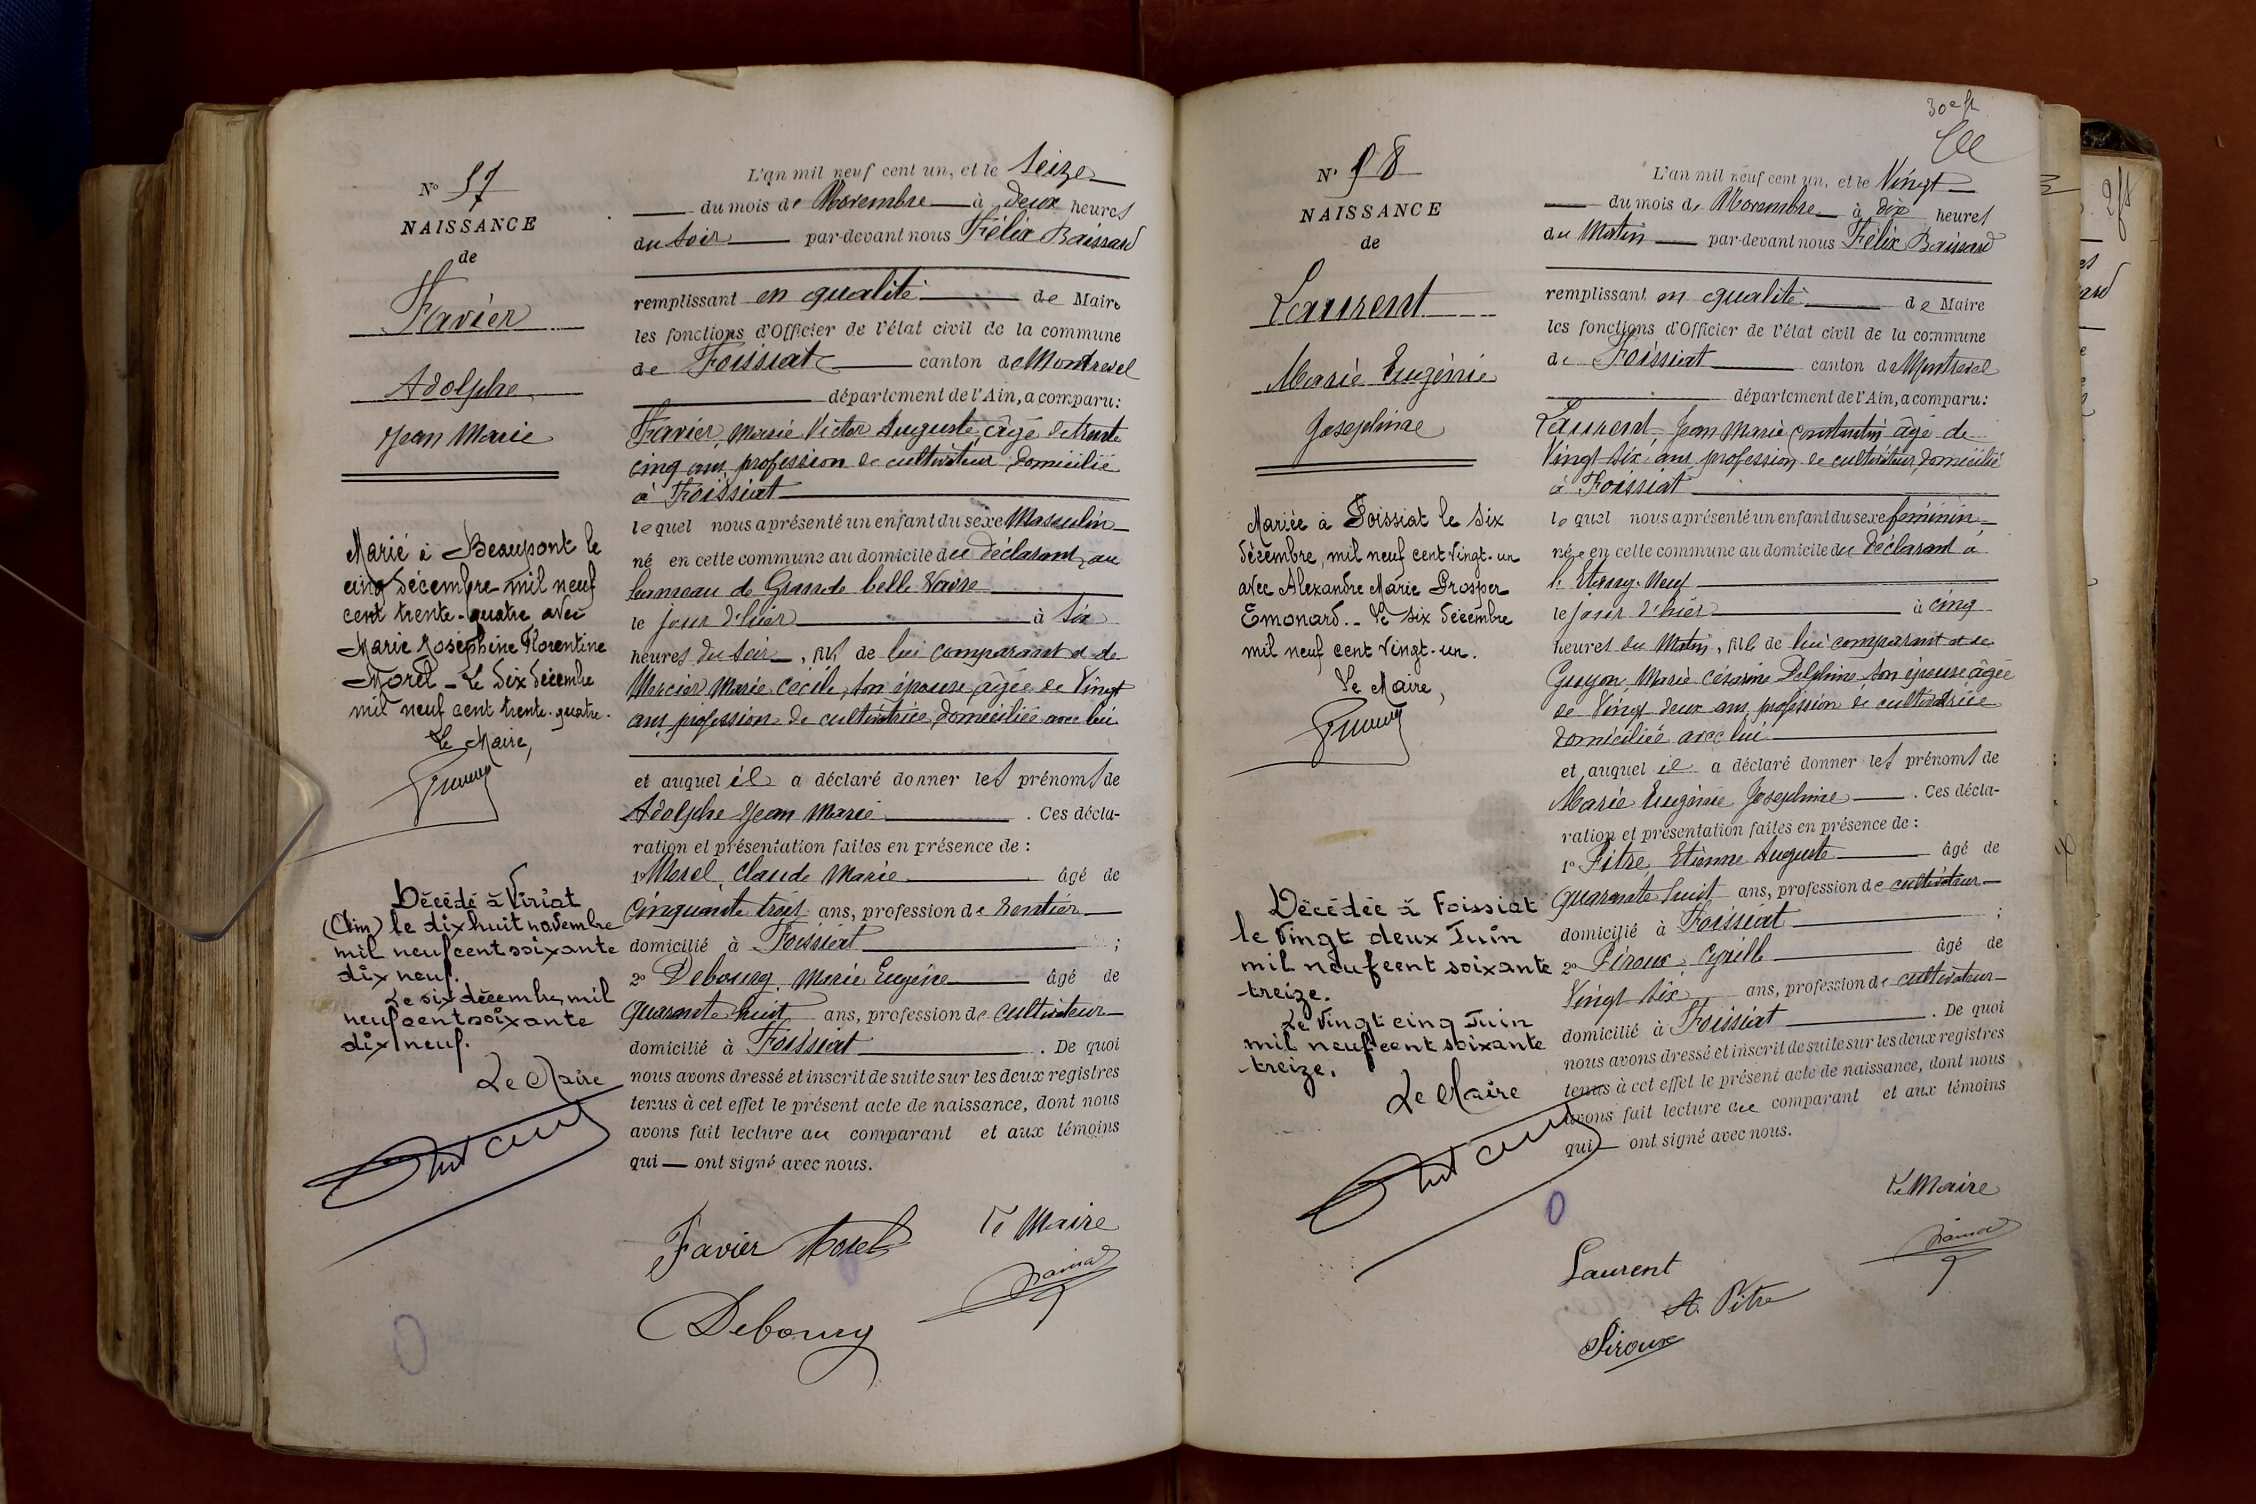 N° 57
NAISSANCE
de
Favier
Adolphe
Jean Marie
Marié à Beaupont le
cinq décembre mil neuf
cent trente-quatre avec
Marie Joséphine Florentine
Morel _ Le dix décembre
mil neuf cent trente-quatre.
Le Maire,
Décédé à Viriat
(Ain) le dix huit novembre
mil neuf cent soixante
dix neuf.
Le six décembre mil
neuf cent soixante
dix neuf.
Le Maire
L'an mil neuf cent un, et le Seize
du mois de Novembre à deux heures
du Soir par-devant nous Félix Baissard
remplissant en qualité de Maire
les fonctions d'Officier de l'état civil de la commune
de Foissiat canton de Montrevel
département de l'Ain, a comparu:
Favier, Marie Victor Auguste, âgé de trente
cinq ans, profession de cultivateur, domicilié
à Foissiat
lequel nous a présenté un enfant du sexe Masculin
né en cette commune au domicile du déclarant, au
hameau de Grande belle Vavre
le jour d'hier à six
heures du Soir, fils de lui comparant et de
Mercier Marie Cécile, son épouse, âgée de Vingt
ans, profession de cultivatrice, domiciliée avec lui
et auquel il a déclaré donner les prénoms de
Adolphe Jean Marie . Ces décla-
ration et présentation faites en présence de :
1° Morel, Claude Marie âgé de
Cinquante trois ans, profession de Rentier
domicilié à Foissiat ;
2° Debourg, Marie Eugène âgé de
Quarante huit ans, profession de cultivateur
domicilié à Foissiat . De quoi
nous avons dressé et inscrit de suite sur les deux registres
tenus à cet effet le présent acte de naissance, dont nous
avons fait lecture au comparant et aux témoins
qui ont signé avec nous.
Favier Morel Le Maire
Debourg
30e f
N° 58
NAISSANCE
de
Laurent
Marie Eugénie
Joséphine
Mariée à Foissiat le Six
décembre, mil neuf cent vingt-un
avec Alexandre Marie Prosper
Emonard. _ Le six décembre
mil neuf cent vingt-un.
Le Maire,
Décédée à Foissiat
le vingt deux Juin
mil neuf cent soixante
-treize.
Le vingt cinq Juin
mil neuf cent soixante
-treize.
Le Maire
L'an mil neuf cent un, et le Vingt
du mois de Novembre à dix heures
du Matin par-devant nous Félix Baissard
remplissant en qualité de Maire
les fonctions d'Officier de l'état civil de la commune
de Foissiat canton de Montrevel
département de l'Ain, a comparu:
Laurent, Jean Marie Constantin âgé de
Vingt six ans, profession de cultivateur, domicilié
à Foissiat
lequel nous a présenté un enfant du sexe féminin
née en cette commune au domicile du déclarant à
l'Etang-Neuf
le jour d'hier à cinq
heures du Matin, fille de lui comparant et de
Guyon, Marie Césarine Delphine, son épouse âgée
de Vingt deux ans, profession de cultivatrice
domiciliée avec lui
et auquel il a déclaré donner les prénoms de
Marie Eugénie Joséphine . Ces décla-
ration et présentation faites en présence de :
1° Pitre, Etienne Auguste âgé de
Quarante huit ans, profession de cultivateur
domicilié à Foissiat ;
2° Piroux, Cyrille âgé de
Vingt six ans, profession de cultivateur
domicilié à Foissiat . De quoi
nous avons dressé et inscrit de suite sur les deux registres
tenus à cet effet le présent acte de naissance, dont nous
avons fait lecture au comparant et aux témoins
qui ont signé avec nous.
Le Maire
Laurent
A. Pitre
Piroux